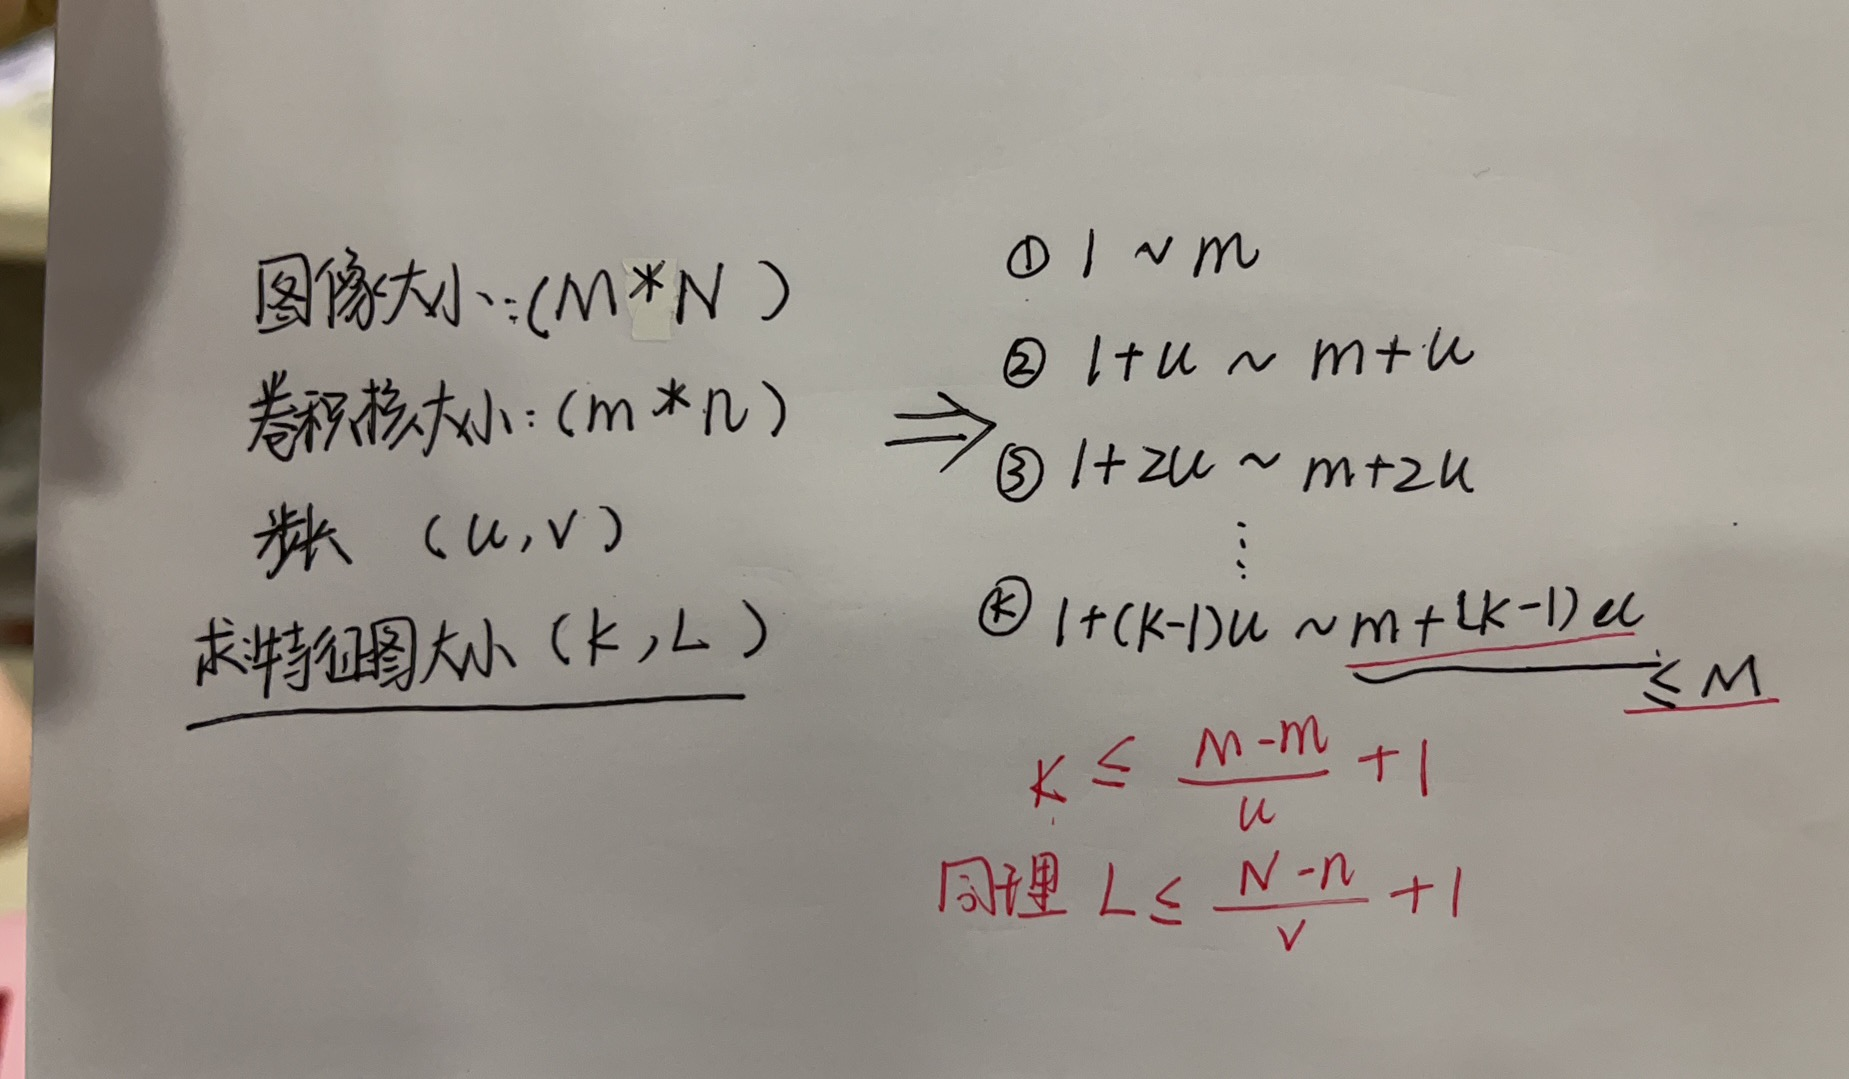 图像大小:(M*N)
卷积核大小:(m*n)
步长 (u,v)
求特征图大小(K,L)
⇒
① 1~m
② 1+u ~ m+u
③ 1+2u ~ m+2u
⋮
Ⓚ 1+(K-1)u ~ m+(K-1)u ≤ M
K ≤ \frac{M-m}{u} + 1
同理 L ≤ \frac{N-n}{v} + 1